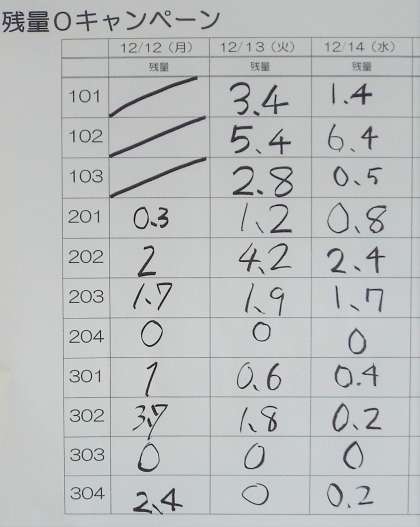 残量0キャンペーン
12/12（月） 12/13（火） 12/14（水）
残量 残量 残量
101 3.4 1.4
102 5.4 6.4
103 2.8 0.5
201 0.3 1.2 0.8
202 2 4.2 2.4
203 1.7 1.9 1.7
204 0 0 0
301 1 0.6 0.4
302 3.7 1.8 0.2
303 0 0 0
304 2.4 0 0.2